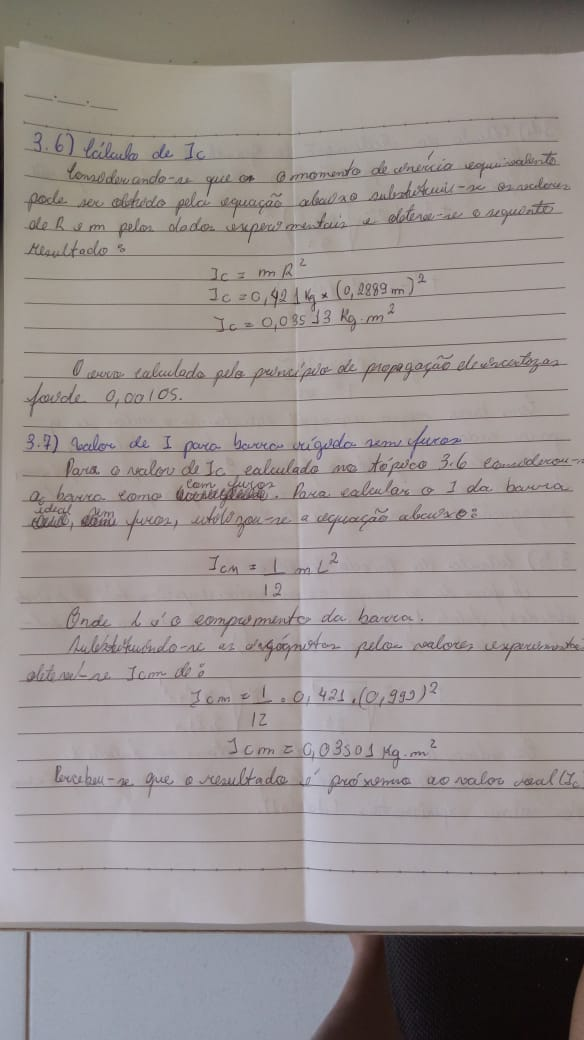 3.6) Cálculo de Ic
Considerando-se que o momento de inércia equivalente
pode ser obtido pela equação abaixo substituiu-se os valores
de R e m pelos dados experimentais e obteve-se o seguinte
resultado:
Ic = m R²
Ic = 0,421 Kg × (0,2889 m)²
Ic = 0,03513 Kg.m²
O erro calculado pelo princípio de propagação de incertezas
foi de 0,00105.
3.7) Valor de I para barra rígida sem furos
Para o valor de Ic calculado no tópico 3.6 considerou-
a barra como com furos. Para calcular o I da barra
ideal, sem furos, utilizou-se a equação abaixo:
Icm = 1/12 m L²
Onde L é o comprimento da barra.
Substituindo-se as pelos valores experimentai
obteve-se Icm de:
Icm = 1/12 . 0,421 . (0,999)²
Icm = 0,03501 Kg.m²
Percebeu-se que o resultado é próximo ao valor real (Ic